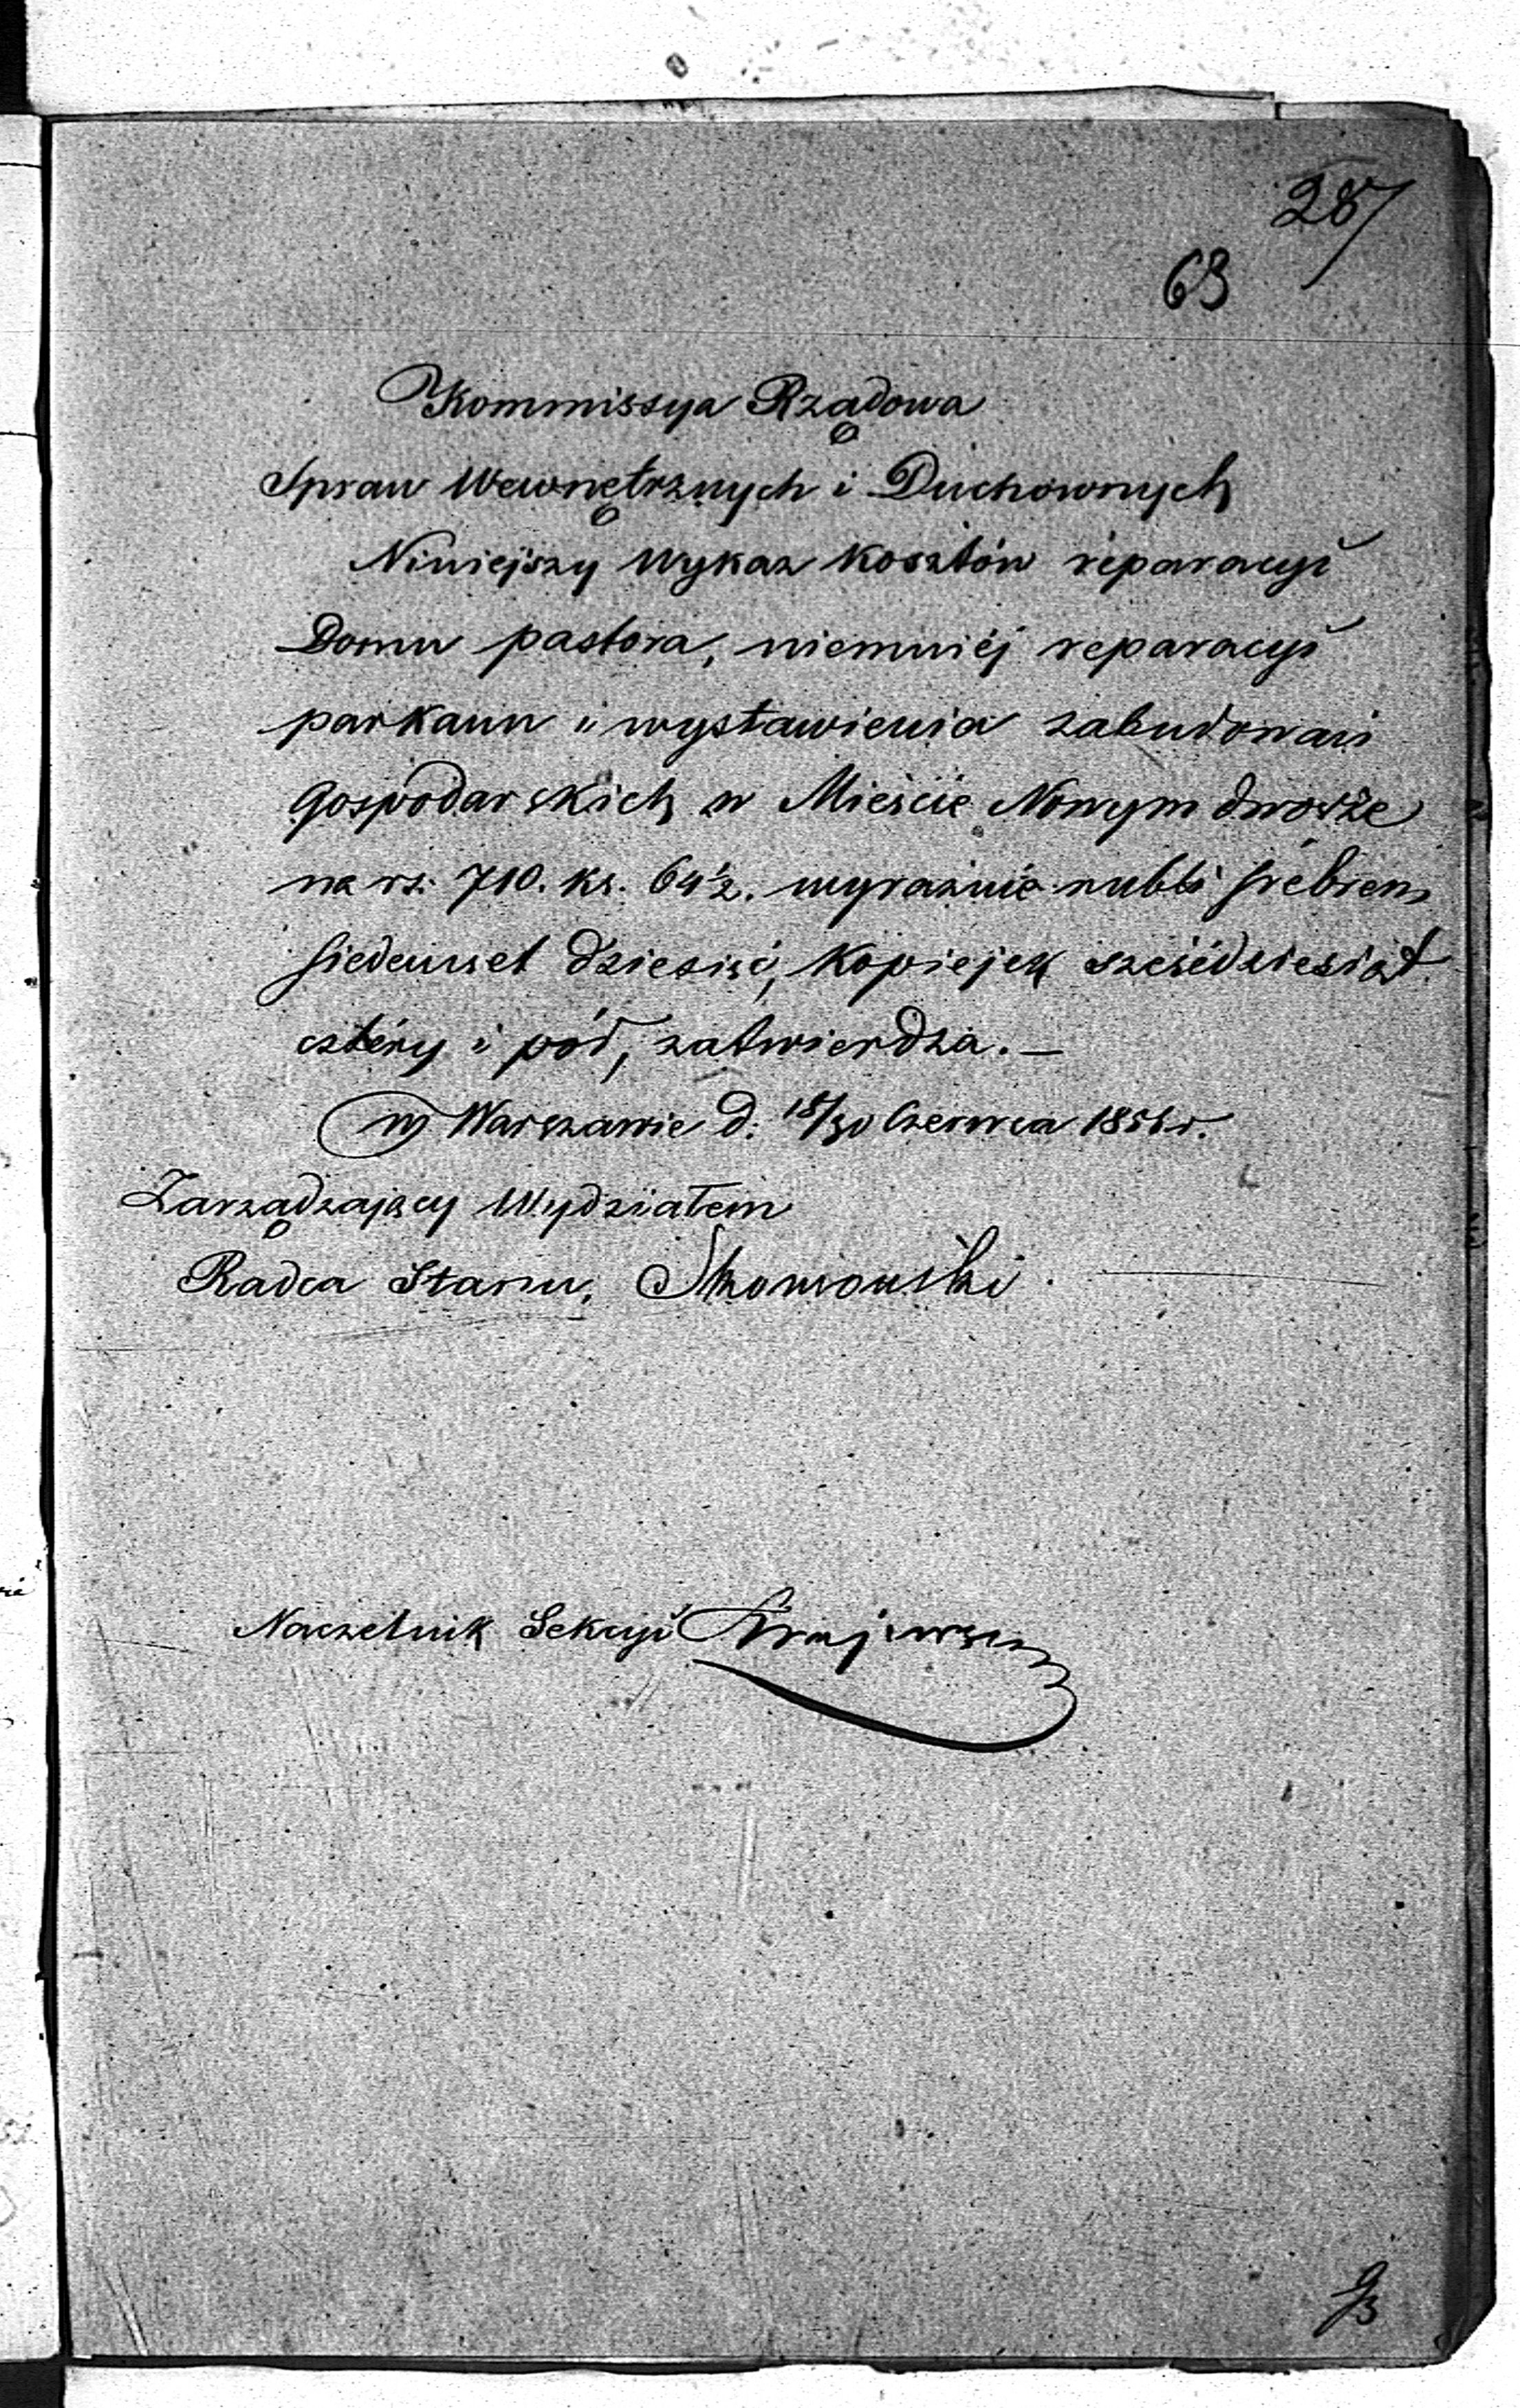 287
63
Kommissya Rządowa
Spraw Wewnętrznych i Duchownych
Niniejszy Wykaz kosztów reparacyi
Domu pastora, niemniéj reparacyi
parkanu i wystawienia zabudowań
Gospodarskich w Mieście Nowym dworze
na rs: 710. ks. 64½. wyraźnie rubli srebrem
siedemset dziesięć, kopiejek sześćdziesiąt
cztéry i pół, zatwierdza. —
w Warszawie d: 18/30 Czerwca 1856 r.
Zarządzający Wydziałem
Radca Stanu, Skowroński
Naczelnik Sekcyi Krajewski